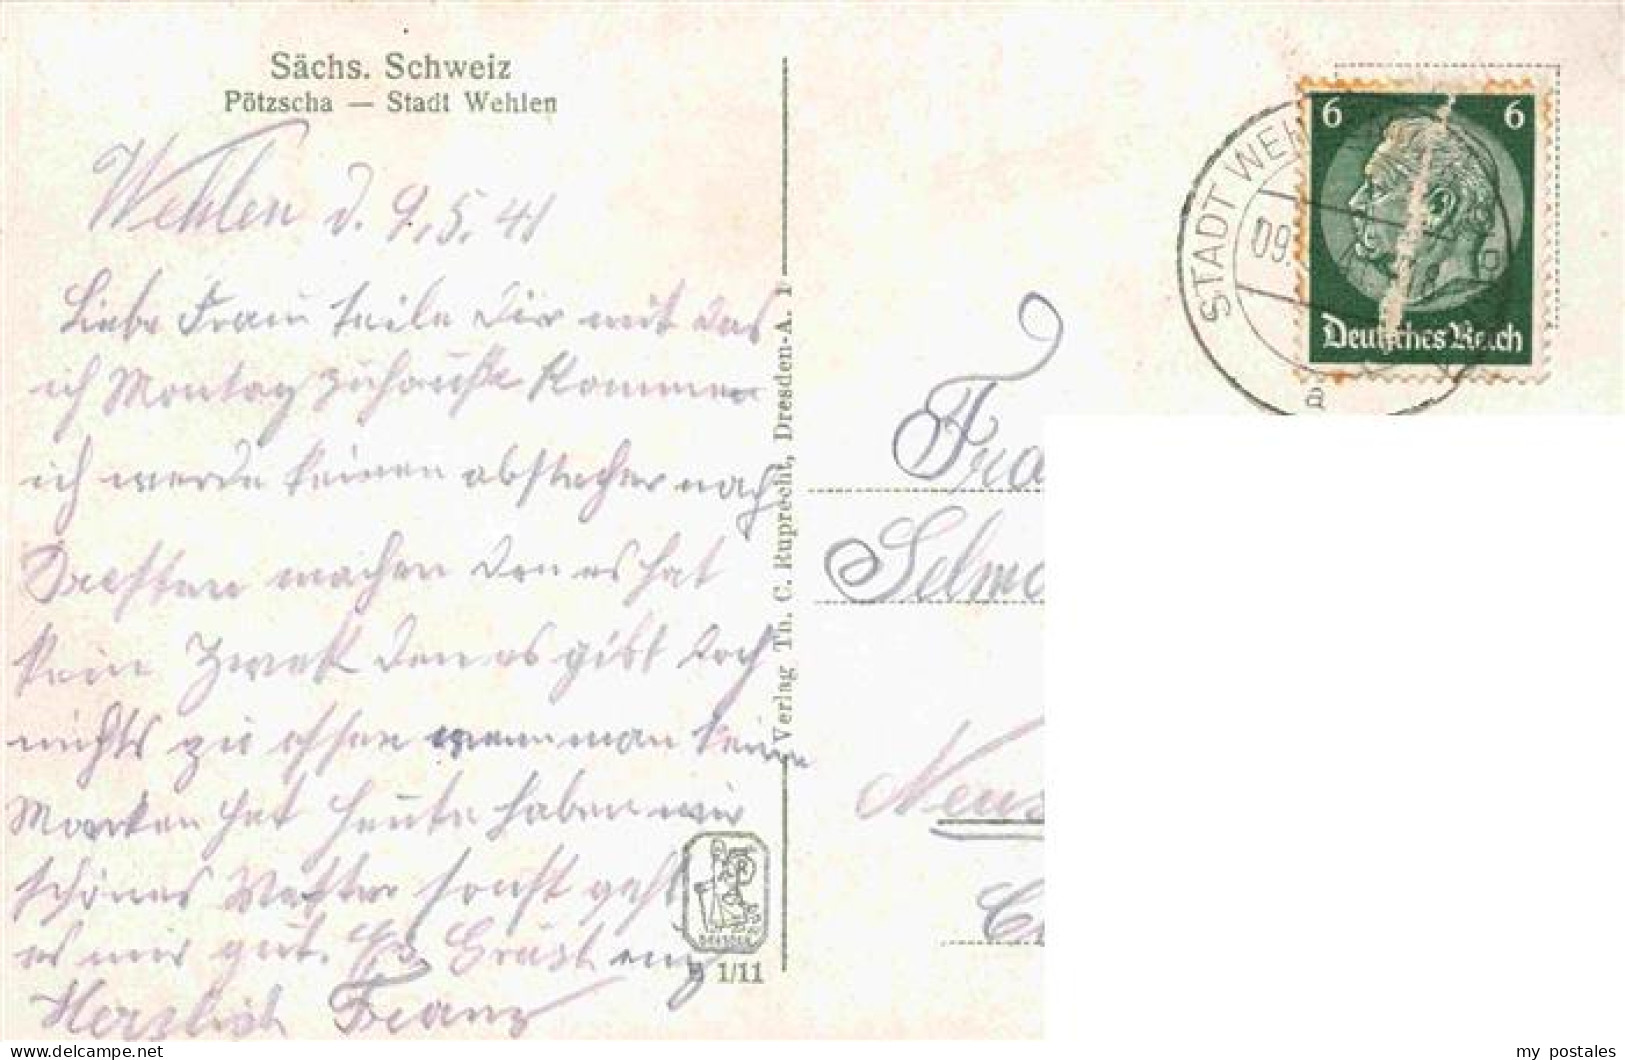 Sächs. Schweiz
Pötzscha — Stadt Wehlen
Wehlen d. 9.5.41
Liebe Frau teile Dir mit das
ich Montag zuhause kommen
ich werde keinen abstecher nach
Dresten machen den es hat
kein Zweck den es gibt doch
nichts zu essen wenn man keine
Marken hat heute haben wir
schönes Wetter sonst geht
es mir gut. Es Grüst
Herzlich Franz
Verlag Th. C. Ruprecht, Dresden-A. 1
DRESDEN
1/11
STADT WEH
09.
6 6
Deutsches Reich
Fra
Selma
Neus
my postales
delcampe.net